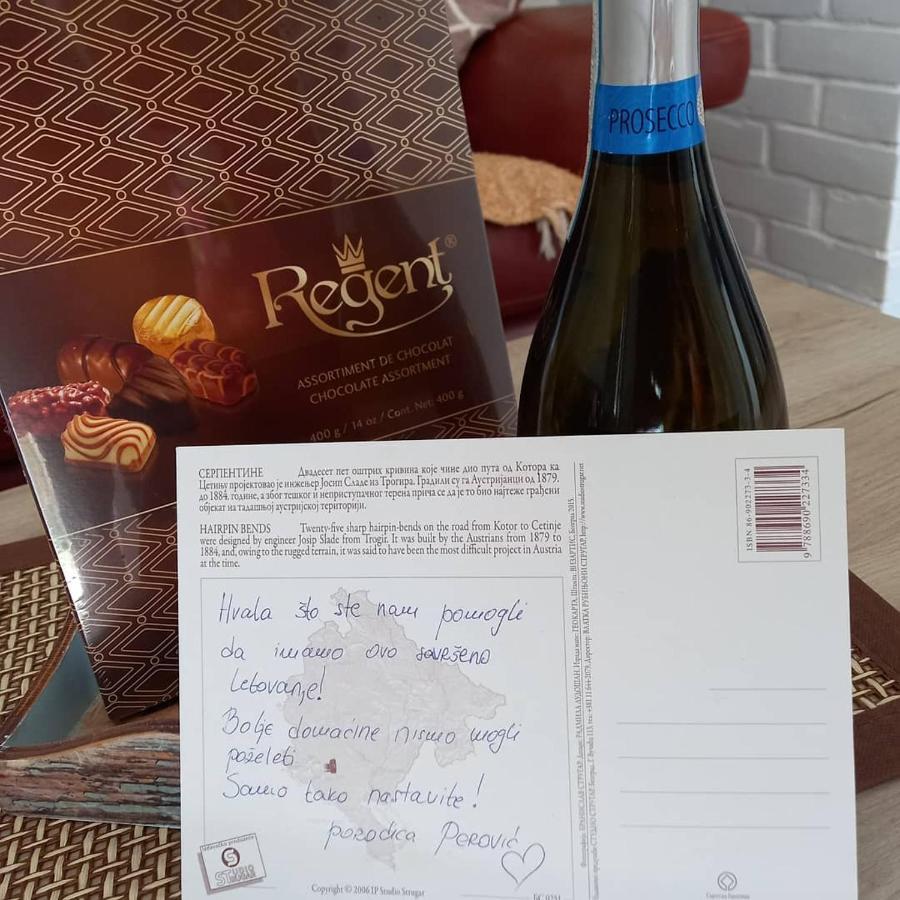 PROSECCO
Regent®
ASSORTIMENT DE CHOCOLAT
CHOCOLATE ASSORTMENT
400 g / 14 oz / Cont. Net: 400 g
СЕРПЕНТИНЕ Двадесет пет оштрих кривина које чине дио пута од Котора ка
Цетињу пројектовао је инжењер Јосип Сладе из Трогира. Градили су га Аустријанци од 1879.
до 1884. године, а због тешког и неприступачног терена прича се да је то био најтеже грађени
објекат на тадашњој аустријској територији.
HAIRPIN BENDS Twenty-five sharp hairpin-bends on the road from Kotor to Cetinje
were designed by engineer Josip Slade from Trogir. It was built by the Austrians from 1879 to
1884, and, owing to the rugged terrain, it was said to have been the most difficult project in Austria
at the time.
Hvala što ste nam pomogli
da imamo ovo savršeno
letovanje!
Bolje domaćine nismo mogli
poželeti
Samo tako nastavite!
porodica Perović
STUDIO
STRUGAR
Copyright © 2006 IP Studio Strugar
ISBN 86-902273-3-4
9 788690 227334